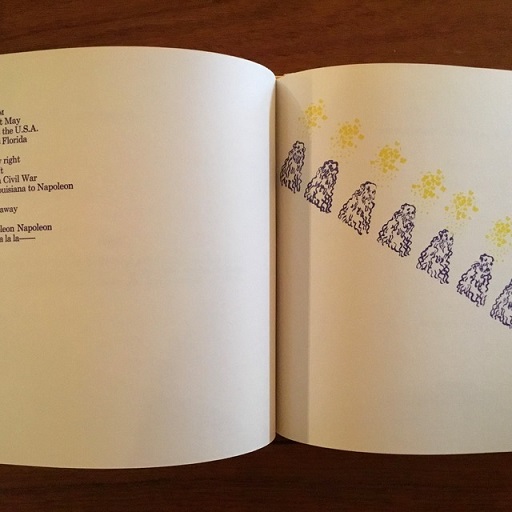 t May
the U.S.A.
Florida
right
Civil War
ouisiana to Napoleon
away
leon Napoleon
a la la——